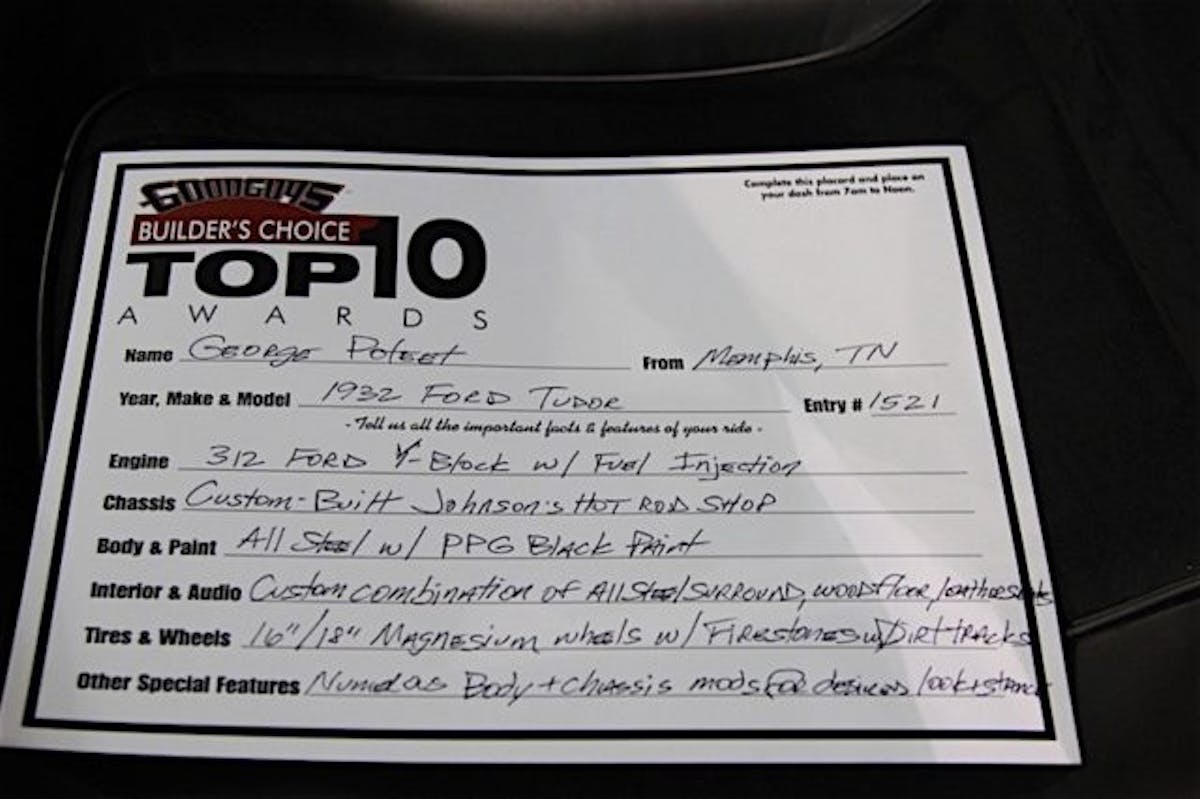 GOODGUYS
BUILDER'S CHOICE
TOP 10
AWARDS
Complete this placard and place on
your dash from 7am to Noon.
Name George Poteet From Memphis, TN
Year, Make & Model 1932 Ford Tudor Entry # 1521
- Tell us all the important facts & features of your ride -
Engine 312 Ford Y-Block w/ Fuel Injection
Chassis Custom-Built Johnson's Hot Rod Shop
Body & Paint All Steel w/ PPG Black Paint
Interior & Audio Custom combination of All Steel surround, wood floor, leather seats
Tires & Wheels 16"/18" Magnesium wheels w/ Firestones w/ Dirt tracks
Other Special Features Body + chassis mods for desired look + stance